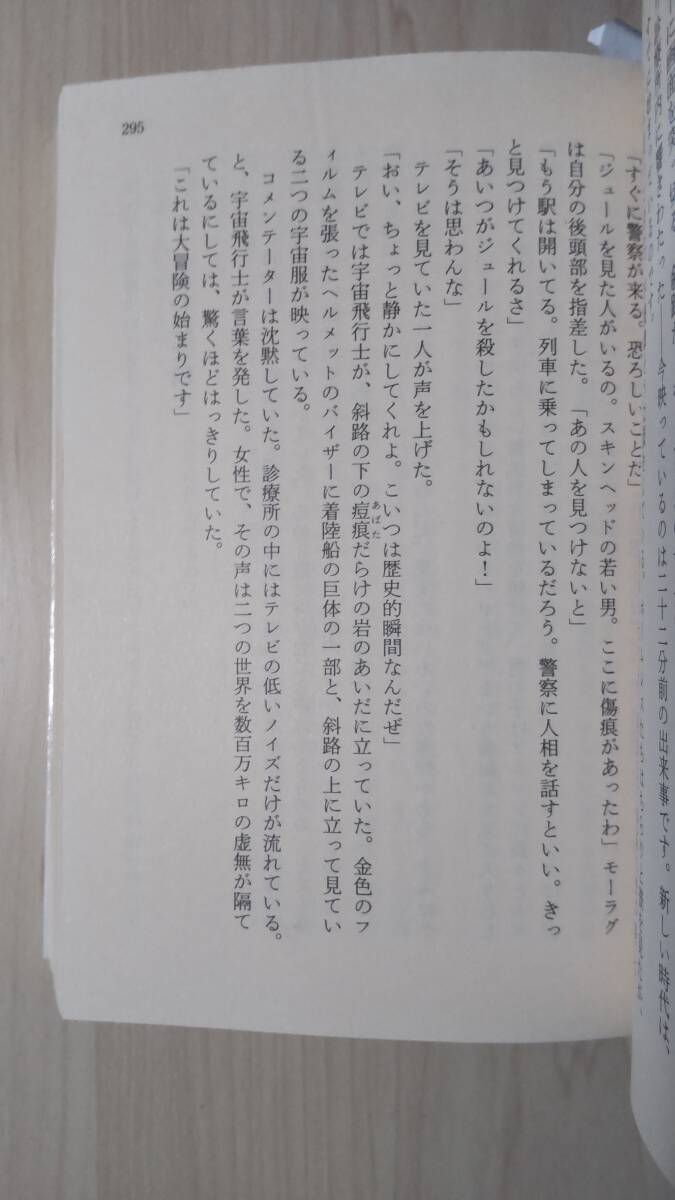 今映っているのは二十二分前の出来事です。新しい時代は、
「すぐに警察が来る。恐ろしいことだ」
「ジュールを見た人がいるの。スキンヘッドの若い男。ここに傷痕があったわ」モーラグ
は自分の後頭部を指差した。「あの人を見つけないと」
「もう駅は開いてる。列車に乗ってしまっているだろう。警察に人相を話すといい。きっ
と見つけてくれるさ」
「あいつがジュールを殺したかもしれないのよ!」
「そうは思わんな」
テレビを見ていた一人が声を上げた。
「おい、ちょっと静かにしてくれよ。こいつは歴史的瞬間なんだぜ」
テレビでは宇宙飛行士が、斜路の下の痘痕だらけの岩のあいだに立っていた。金色のフ
あばた
ィルムを張ったヘルメットのバイザーに着陸船の巨体の一部と、斜路の上に立って見てい
る二つの宇宙服が映っている。
コメンテーターは沈黙していた。診療所の中にはテレビの低いノイズだけが流れている。
と、宇宙飛行士が言葉を発した。女性で、その声は二つの世界を数百万キロの虚無が隔て
ているにしては、驚くほどはっきりしていた。
「これは大冒険の始まりです」
295